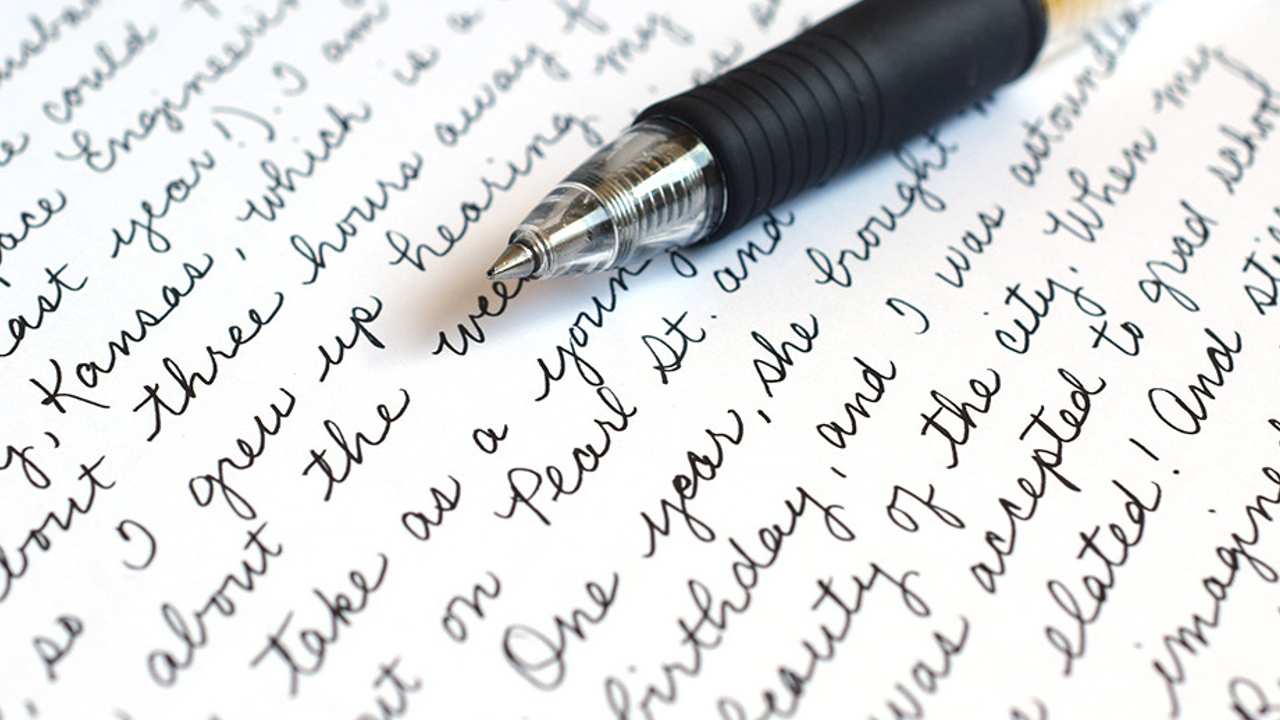 could
Engineerin
last year!). I am
Kansas, which is a
about three hours away
, so I grew up hearing my
about the
take as a young
on Pearl St. and
One year, she brought
birthday, and I was
beauty of the city. When my
was accepted to grad school
elated! And
imagine